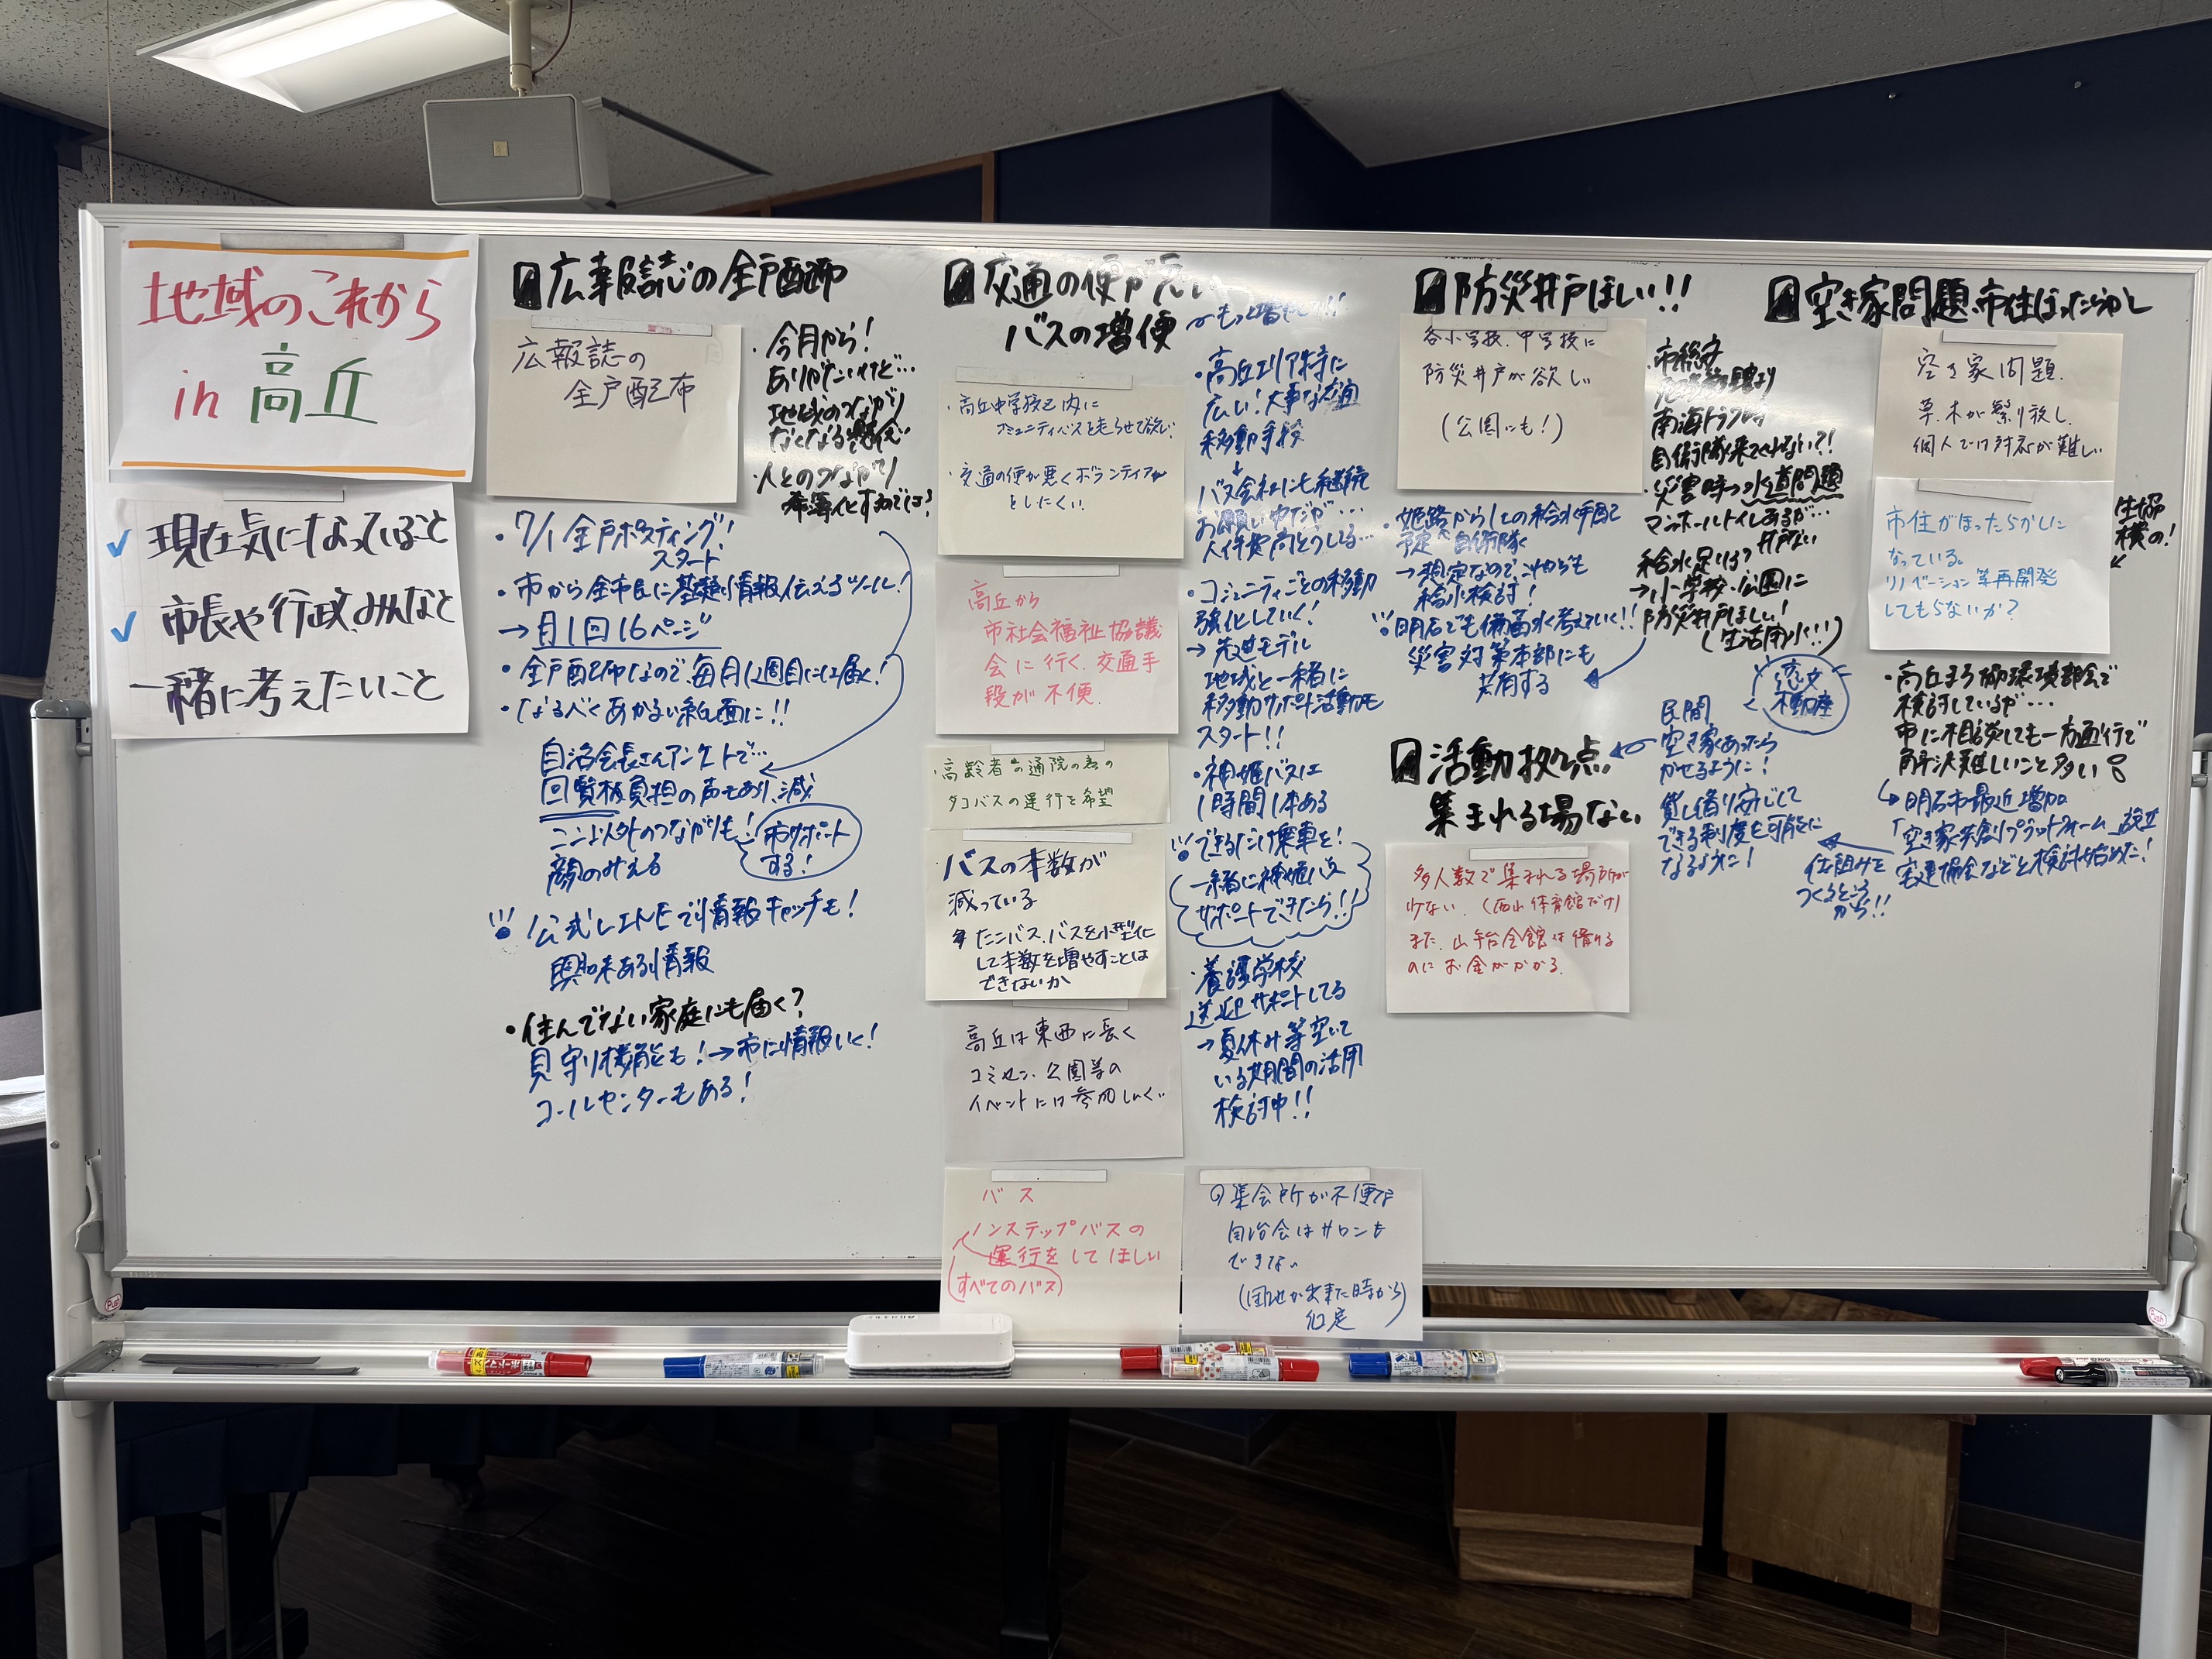 地域のこれから
in 高丘
✓ 現在気になっていること
✓ 市長や行政、みんなと
一緒に考えたいこと
広報誌の全戸配布
広報誌の
全戸配布
・今月から!
ありがたいけど…
地域のつながり
なくなる
・人とのつながり
希薄化するのでは?
・7/1 全戸ポスティング!
スタート
・市から全市民に基礎情報伝えるツール!
→月1回16ページ
・全戸配布なので、毎月1週目には届く!
・なるべくあかるい紙面に!!
自治会長さんアンケートで…
回覧板負担の声もあり、減
ここ以外のつながりも!
顔のみえる
市サポート
する!
公式LINEで情報キャッチも!
興味ある情報
・住んでない家庭にも届く?
見守り機能も!→市に情報いく!
コールセンターもある!
交通の便が悪い
バスの増便
もっと増やして!!
・高丘中学校区内に
コミュニティバスを走らせて欲しい
・交通の便が悪くボランティアが
をしにくい
高丘から
市社会福祉協議
会に行く、交通手
段が不便.
・高齢者の通院の為の
タコバスの運行を希望
バスの本数が
減っている
たこバス、バスを小型化
して本数を増やすことは
できないか
高丘は東西に長く
コミセン、公園等の
イベントには参加しにくい
バス
ノンステップバスの
運行をしてほしい
(すべてのバス)
・高丘エリア特に
広い!大事な交通
移動手段
↓
バス会社にも継続
お願い中だが…
人件費高とうしてる…
・コミュニティごとの移動
強化していく!
→先進モデル
地域と一緒に
移動サポート活動も
スタート!!
・神姫バスは
1時間1本ある
できるだけ乗車を!
一緒に神姫バス
サポートできたら!!
・養護学校
送迎サポートしてる
→夏休み等空いて
いる期間の活用
検討中!!
集会所が不便な
自治会はサロンも
できない
(団地が出来た時から)
仮定
防災井戸ほしい!!
各小学校、中学校に
防災井戸が欲しい
(公園にも!)
・姫路からの給水手配
予定 自衛隊
→想定なので、これからも
給水検討!
明石でも備蓄水考えていく!!
災害対策本部にも
共有する
南海トラフ
自衛隊来てくれない?!
・災害時の水道問題
マンホールトイレあるが…
井戸ない
給水足りる?
→小学校・公園に
防災井戸ほしい!
(生活用水!!)
活動拠点
集まれる場ない
多人数で集まれる場所が
少ない.(西山体育館だけ)
また、山手台会館は借りる
のにお金がかかる.
民間
空き家あったら
かせるように!
貸し借り安心して
できる制度を可能に
なるように!
恋文
不動産
空き家問題、市住ほったらかし
空き家問題.
草、木が繁り放し.
個人では対応が難しい
市住がほったらかしに
なっている。
リノベーション等再開発
してもらないか?
生協
横の!
・高丘まち協環境部会で
検討しているが…
市に相談しても一方通行で
解決難しいこと多い
↳明石市最近増加
「空き家共創プラットフォーム」設立
宅建協会などと検討始めた!
仕組みを
つくるところ
から!!